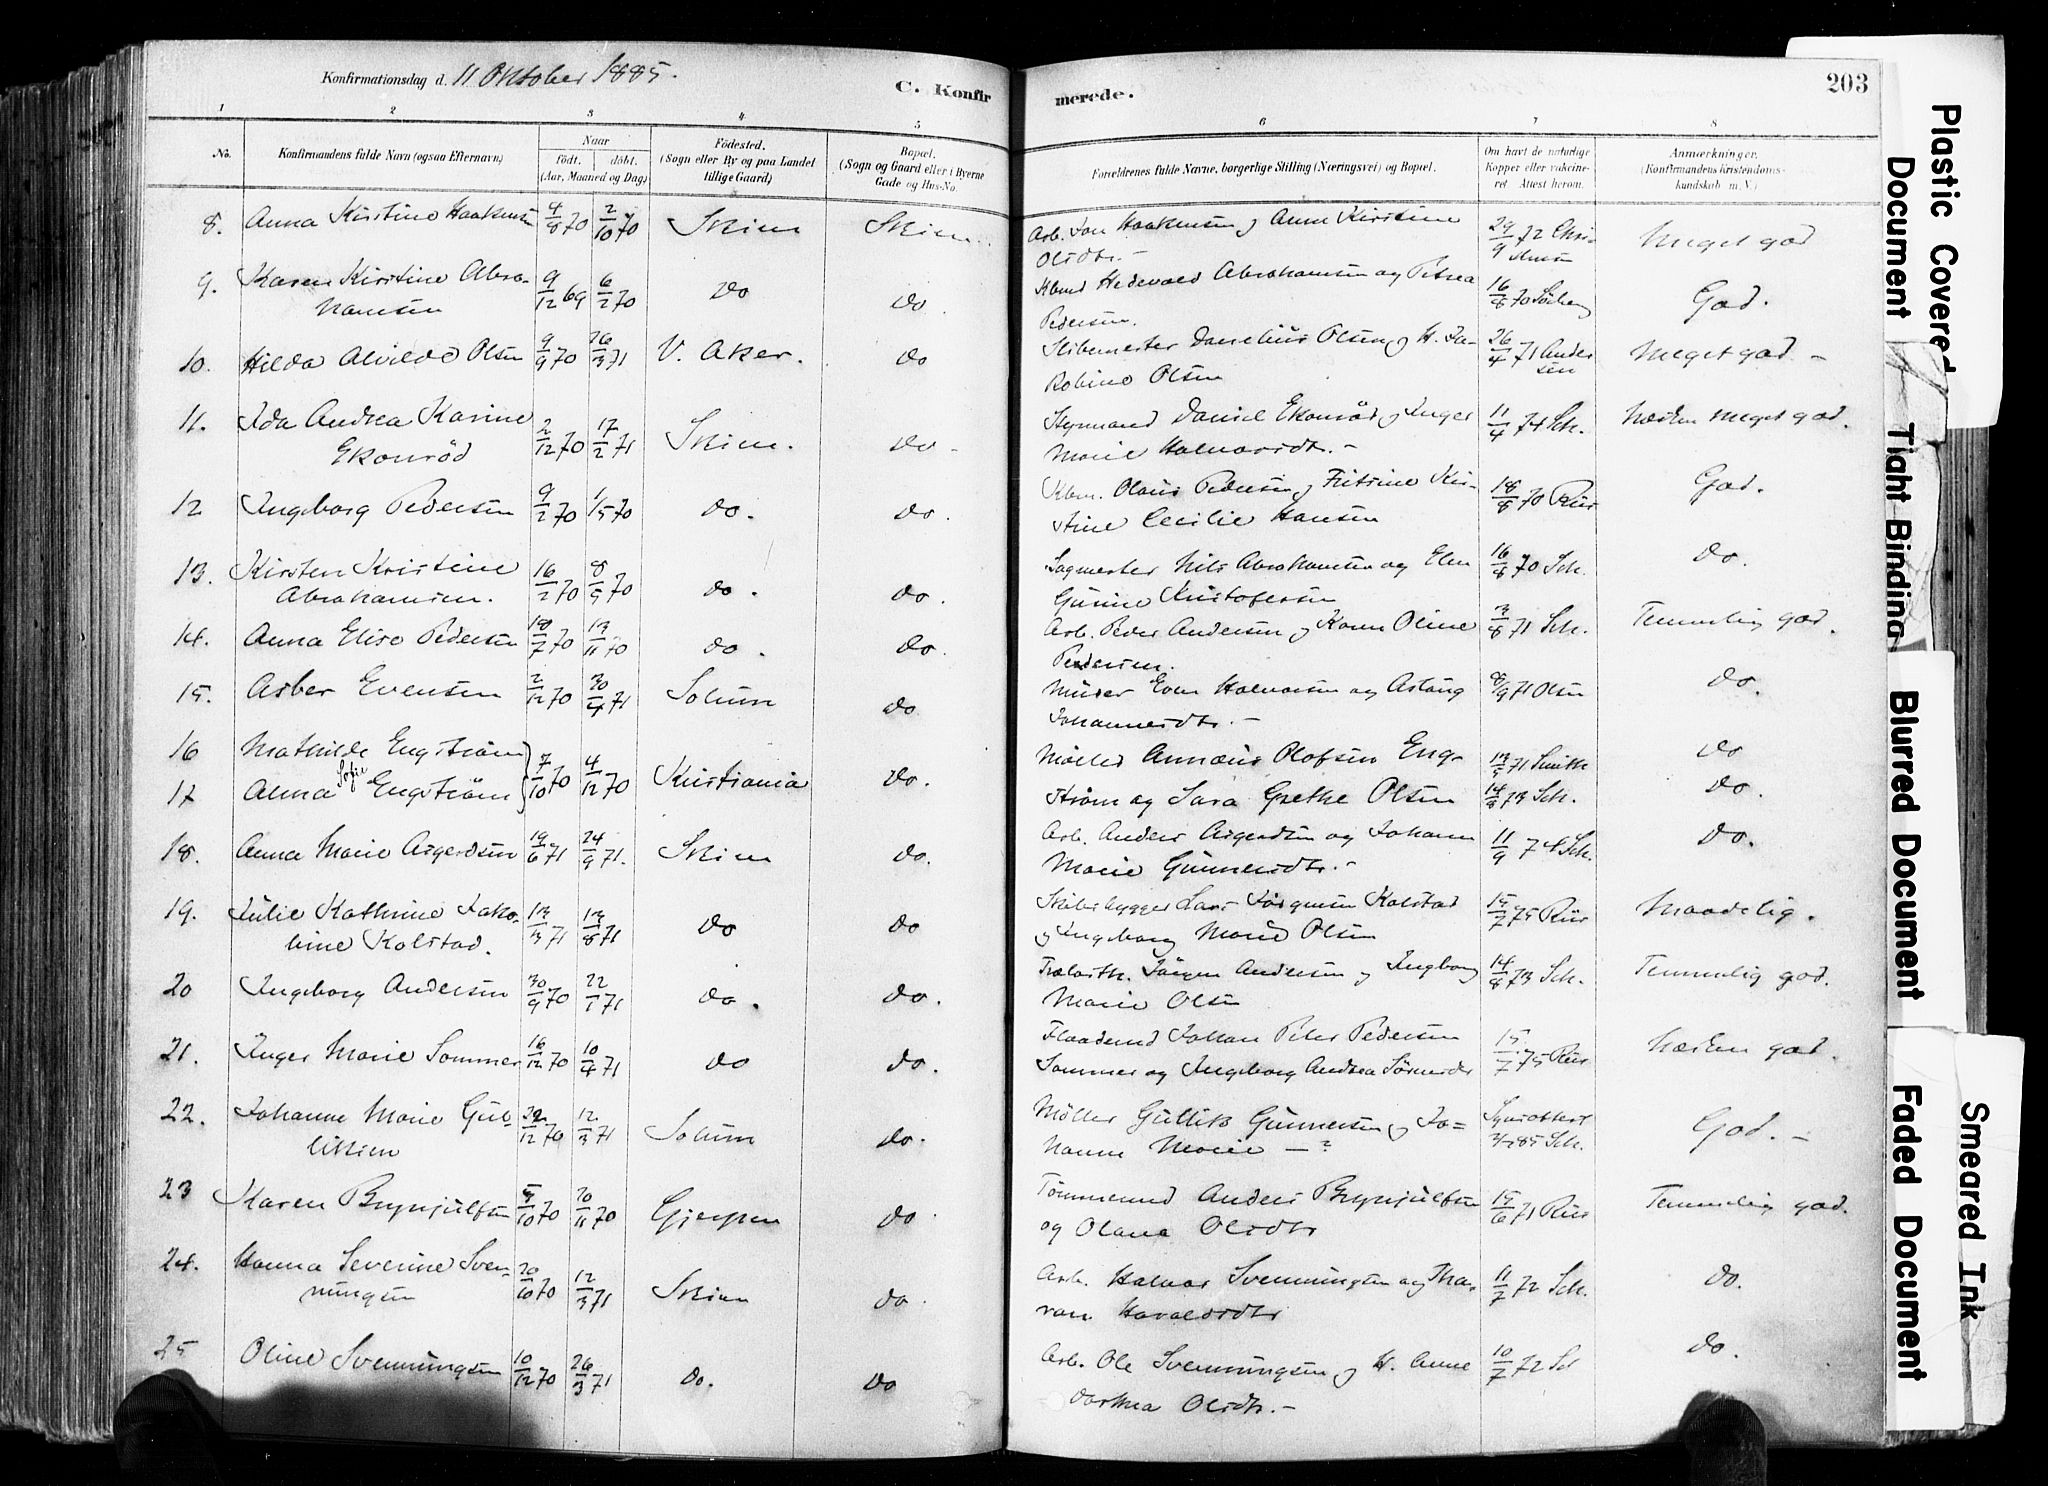 Konfirmationsdag d. 11 Oktober 1885.
C. Konfir
merede.
203
1 2 3 4 5 6 7 8
No.
Konfirmandens fulde Navn (ogsaa Efternavn)
Naar
født. døbt.
(Aar, Maaned og Dag)
Fødested.
(Sogn eller By og paa Landet
tillige Gaard)
Bopæl.
(Sogn og Gaard eller i Byerne
Gade og Hus-No.
Forældrenes fulde Navne, borgerlige Stilling (Næringsvei) og Bopæl.
Om havt de naturlige
Kopper eller vakcine-
ret. Attest herom.
Anmærkninger.
(Konfirmandens Kristendoms-
kundskab m. V.)
8. Anna Kirstine Haakensen 4/8 70 2/10 70 Skien Skien Arb. Jon Haakensen og Anne Kirstine 29/9 72 Chri- Meget god
Olsdtr. -
9. Karen Kirstine Abra- 9/12 69 6/2 70 Do Do. Hedevald Abrahamsen og Petrea 16/8 70 God.
hamsen Pedersen.
10. Hilda Alvilde Olsen 9/9 70 26/3 71 V. Aker. Do Skibsmester Olsen og H. Ja- 26/4 71 Ander Meget god -
kobine Olsen sen
11. Ida Andrea Karine 2/12 70 17/2 71 Skien. Do - Styrmand Daniel Ekonrød og Inger 11/4 74 Sch. Næsten meget god.
Ekonrød Marie Halvorsdtr. -
12 Ingeborg Pedersen 9/2 70 1/5 70 do. Do. Kbm. Olaus Pedersen og Fritrine Kir- 18/8 70 Riis God.
stine Cecilie Hansen
13. Kirsten Kristine 16/2 70 8/5 70 do. Do. Sagmester Nils Abrahamsen og Elen 16/8 70 Sch. Do.
Abrahamsen. Gurine Kristofersen
14. Anna Elise Pedersen 18/7 70 13/11 70 do. Do. Arb. Peder Andersen og Karen Oline 3/8 71 Sch. Temmelig god.
Pedersen.
15. Asber Evensen 2/12 70 30/4 71 Solum Do Murer Even Halvorsen og Aslaug 8/9 71 Olsen Do.
Johannesdtr. -
16 Mathilde Engstrøm 7/10 70 4/12 70 Kristiania Do. Møller Annæus Olofsen Eng- 71 Smith Do
17 Anna Sofie Engstrøm strøm og Sara Grethe Olsen 73 Sch. Do.
18. Anna Marie Asgerdsen 19/6 71 24/9 71. Skien Do. Arb. Anders Asgerdsen og Johanne 11/9 74 Sch. Do.
Marie Gunnersdtr. -
19. Julie Kathrine Jako- 13/3 71 13/8 71 Do Do Skibsbygger Lars Jørgensen Kolstad 15/7 75 Riis Maadelig.
bine Kolstad. og Ingeborg Marie Olsen
20 Ingeborg Andersen 30/9 70 22/1 71 Do. Do. Jørgen Andersen og Ingborg 14/8 73 Sch. Temmelig god.
Marie Olsen
21. Inger Marie Sommer 16/12 70 10/4 71 Do Do. Flaademd Johan Peter Pedersen 15/7 75 Riis Næsten god.
Sommer og Ingeborg Andrea
22. Johanne Marie Gul- 12 70 12/3 71 Solum Do. Møller Gullik Gunnersen og Jo- God. -
liksen hanne Marie - ? 85 Sch.
23 Karen Brynjulfsen 10 70 20/11 70 Gjerpen Do Tømmermd Anders Brynjulfsen 15/6 71 Riis Temmelig god.
og Olana Olsdtr
24. Hanna Severine Sven- 20/10 70 12/3 71 Skien Do Arb. Halvor Svenningsen og Tha- 11/7 72 Sch. Do.
ningsen ran Haraldsdtr
25 Oline Svenningsen 10/12 70 26/3 71 Do. Do Arb. Ole Svenningsen og H. Anne 10/7 72 Sch Do.
Dorthea Olsdtr. -
Plastic Covered Document
Tight Binding
Blurred Document
Faded Document
Smeared Ink